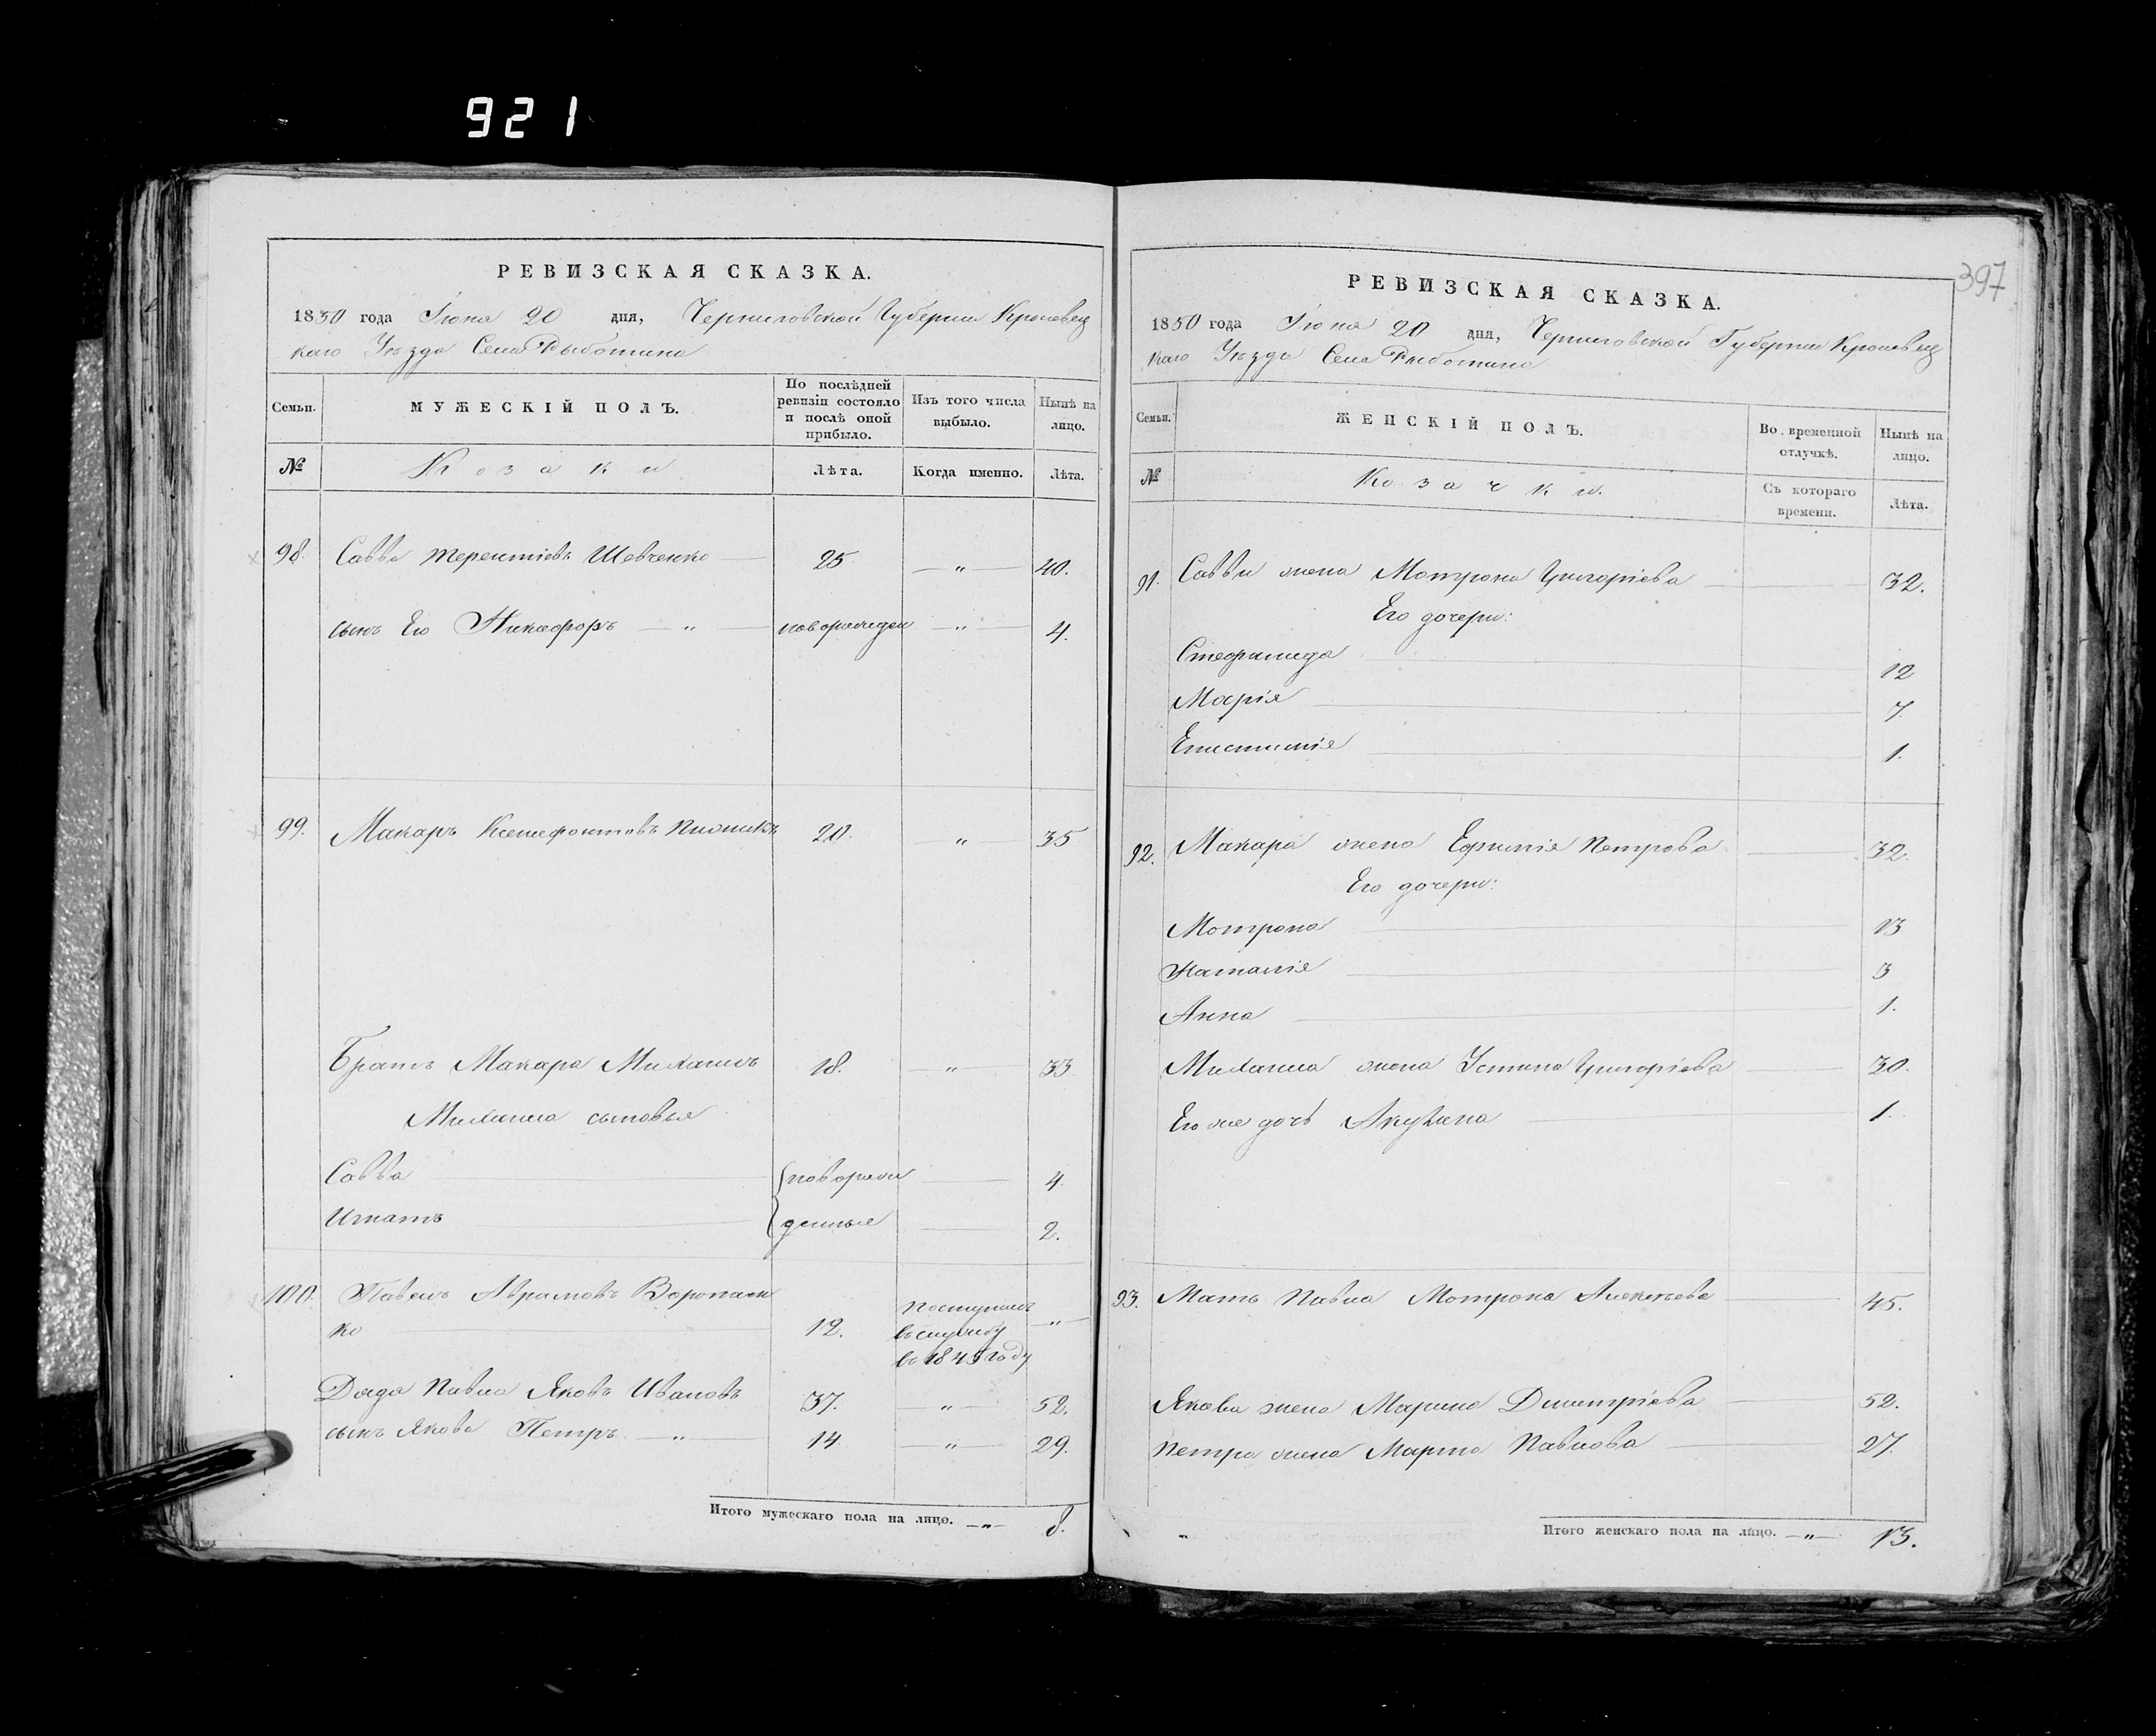 921
РЕВИЗСКАЯ СКАЗКА.
1850 года Іюня 20 дня, Черниговской Губерніи Кролевец
каго Уѣзда Села Рыботина
Семьи. МУЖЕСКІЙ ПОЛЪ. По послѣдней ревизіи состояло и послѣ оной прибыло. Изъ того числа выбыло. Нынѣ на лицо.
№ Козаки Лѣта. Когда именно. Лѣта.
98. Савва Терентіевъ Шевченко 25 — „ — 40.
сынъ Его Никифоръ — „ — новорожден — „ — 4.
99. Макаръ Ксенофонтовъ 20. — „ — 35
Братъ Макара Михаилъ 18. — „ — 33
Михаила сыновья
Савва новорож 4.
Игнатъ денные 2.
100. Павелъ Аврамовъ Воропаен
ко 12. поступилъ въ службу въ 1845 году — „ —
Дядя Павла Яковъ Ивановъ 37. — „ — 52.
сынъ Якова Петръ — „ 14. — „ — 29.
Итого мужескаго пола на лицо. — „ — 8.
397
РЕВИЗСКАЯ СКАЗКА.
1850 года Іюня 20 дня, Черниговской Губерніи Кролевец
каго Уѣзда Села Рыботина
Семьи. ЖЕНСКІЙ ПОЛЪ. Во временной отлучкѣ. Нынѣ на лицо.
№ Козачки. Съ котораго времени. Лѣта.
91. Саввы жена Мотрона Григоріева 32.
Его дочери:
Стефанида 12
Марія 7.
Епистимія 1.
92. Макара жена Ефимія Петрова 32.
Его дочери:
Мотрона 13
Наталія 3
Анна 1.
Михаила жена Устина Григоріева 30.
Его же дочь Акулина 1.
93. Мать Павла Мотрона Алексѣева 45.
Якова жена Марина Дмитріева 52.
Петра жена Марта Павлова 27.
Итого женскаго пола на лицо. — „ — 13.